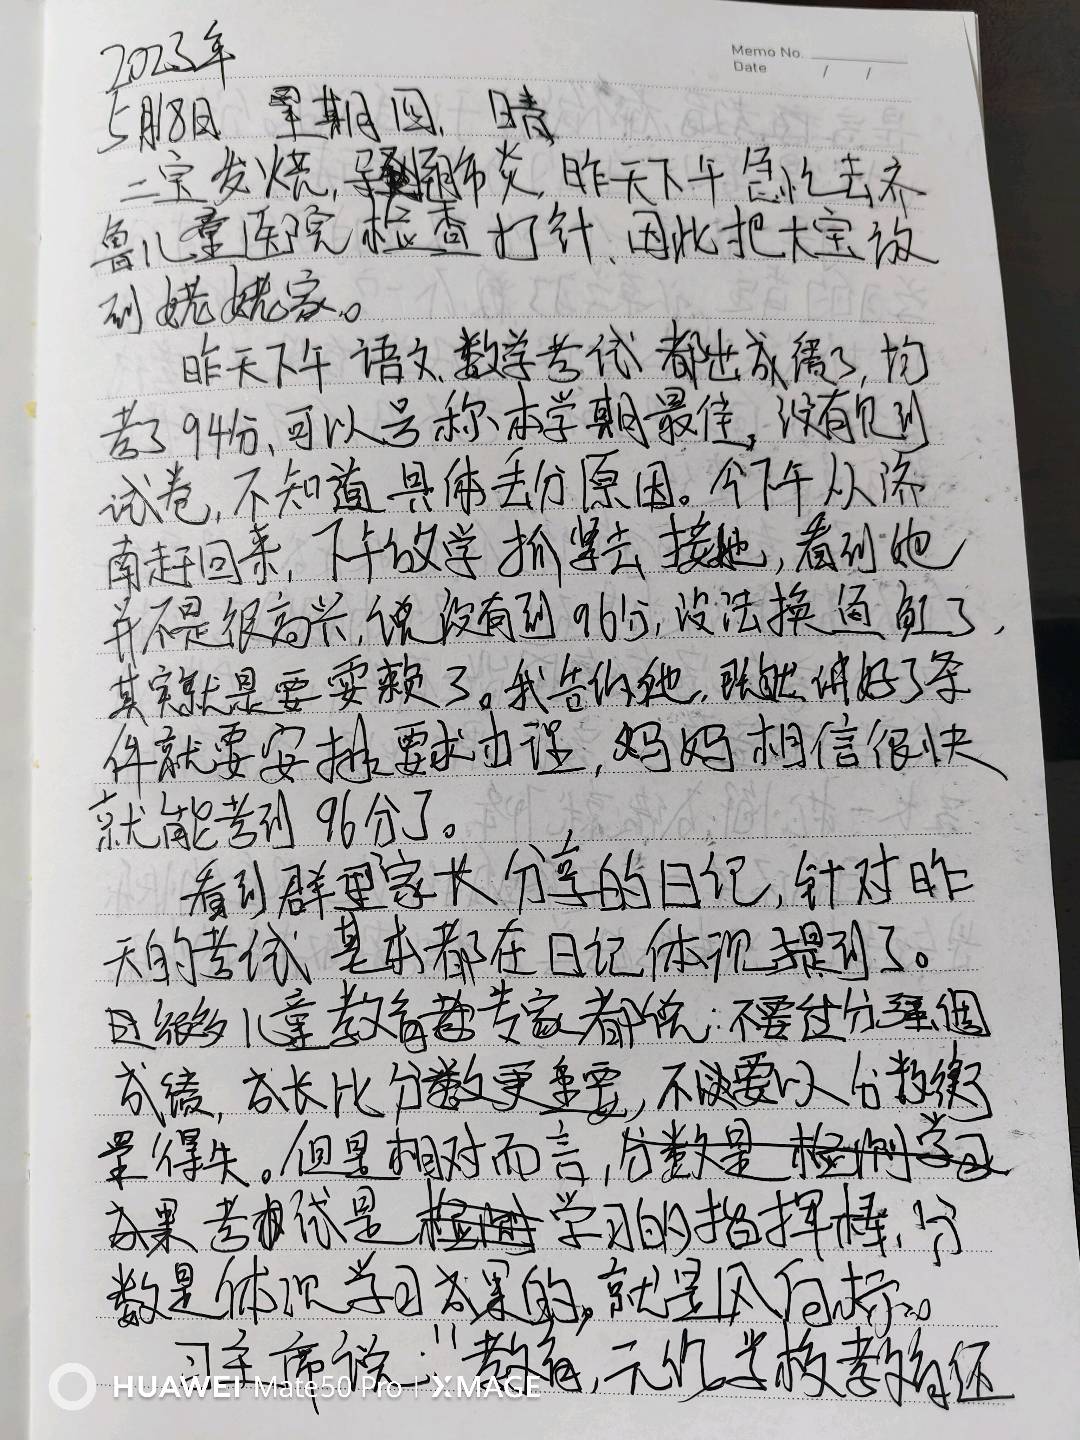 Memo No.
Date / /
2023年
5月18日 星期四. 晴
二宝发烧,肺炎,昨天下午急忙去齐
鲁儿童医院检查打针、因此把大宝放
到姥姥家。
昨天下午语文、数学考试都出成绩了,均
考了94分,可以号称本学期最佳,没有见到
试卷,不知道具体丢分原因。今下午从济
南赶回来,下午放学抓紧去接她,看到她
并不是很高兴,说没有到96分,没法换鱼缸了,
其实就是要耍赖了。我告诉她,既然讲好了条
件就要安排要求办理,妈妈相信很快
就能考到96分了。
看到群里家长分享的日记,针对昨
天的考试基本都在日记体现提到了。
很多儿童教育专家都说:不要过分强调
成绩,成长比分数更重要,不要以分数衡
量得失。但是相对而言,分数是检测学习
成果考试是检测学习的指挥棒,分
数是体现学习成果的,就是风向标。
习主席说:"教育,无论学校教育还
HUAWEI Mate50 Pro | XMAGE